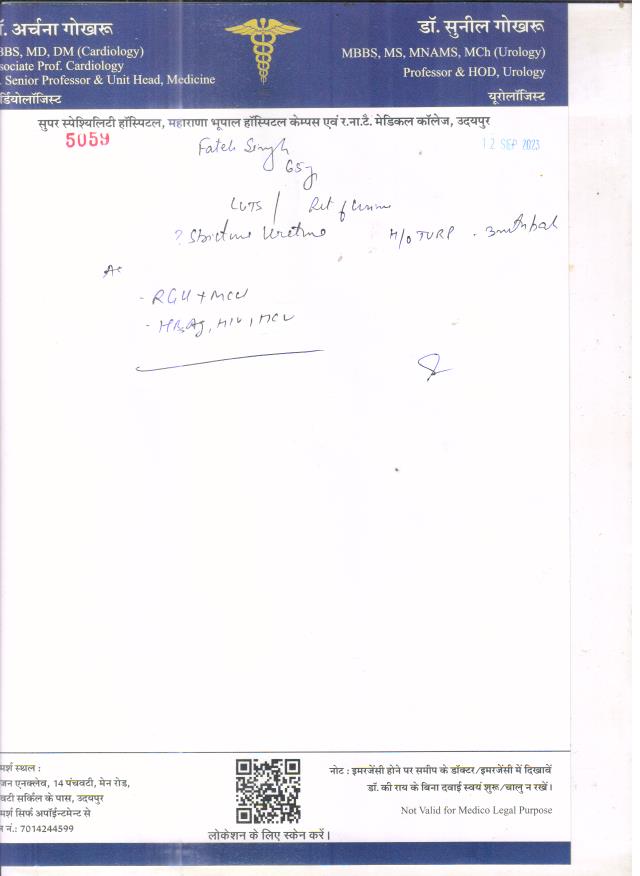 . अर्चना गोखरू
BBS, MD, DM (Cardiology)
sociate Prof. Cardiology
. Senior Professor & Unit Head, Medicine
र्डियोलॉजिस्ट
डॉ. सुनील गोखरू
MBBS, MS, MNAMS, MCh (Urology)
Professor & HOD, Urology
यूरोलॉजिस्ट
सुपर स्पेश्यिलिटी हॉस्पिटल, महाराणा भूपाल हॉस्पिटल केम्पस एवं र.ना.टै. मेडिकल कॉलेज, उदयपुर
5059
12 SEP 2023
Fateh Singh
65y
LUTS / Ret of Urine
? Stricture Urethra H/o TURP - 3 mnth back
- RGU + MCU
- HBsAg, HIV, HCV
मर्श स्थल :
जन एनक्लेव, 14 पंचवटी, मेन रोड,
वटी सर्किल के पास, उदयपुर
मर्श सिर्फ अपॉईन्टमेन्ट से
न नं.: 7014244599
लोकेशन के लिए स्केन करें।
नोट : इमरजेंसी होने पर समीप के डॉक्टर/इमरजेंसी में दिखावें
डॉ. की राय के बिना दवाई स्वयं शुरू/चालु न रखें।
Not Valid for Medico Legal Purpose